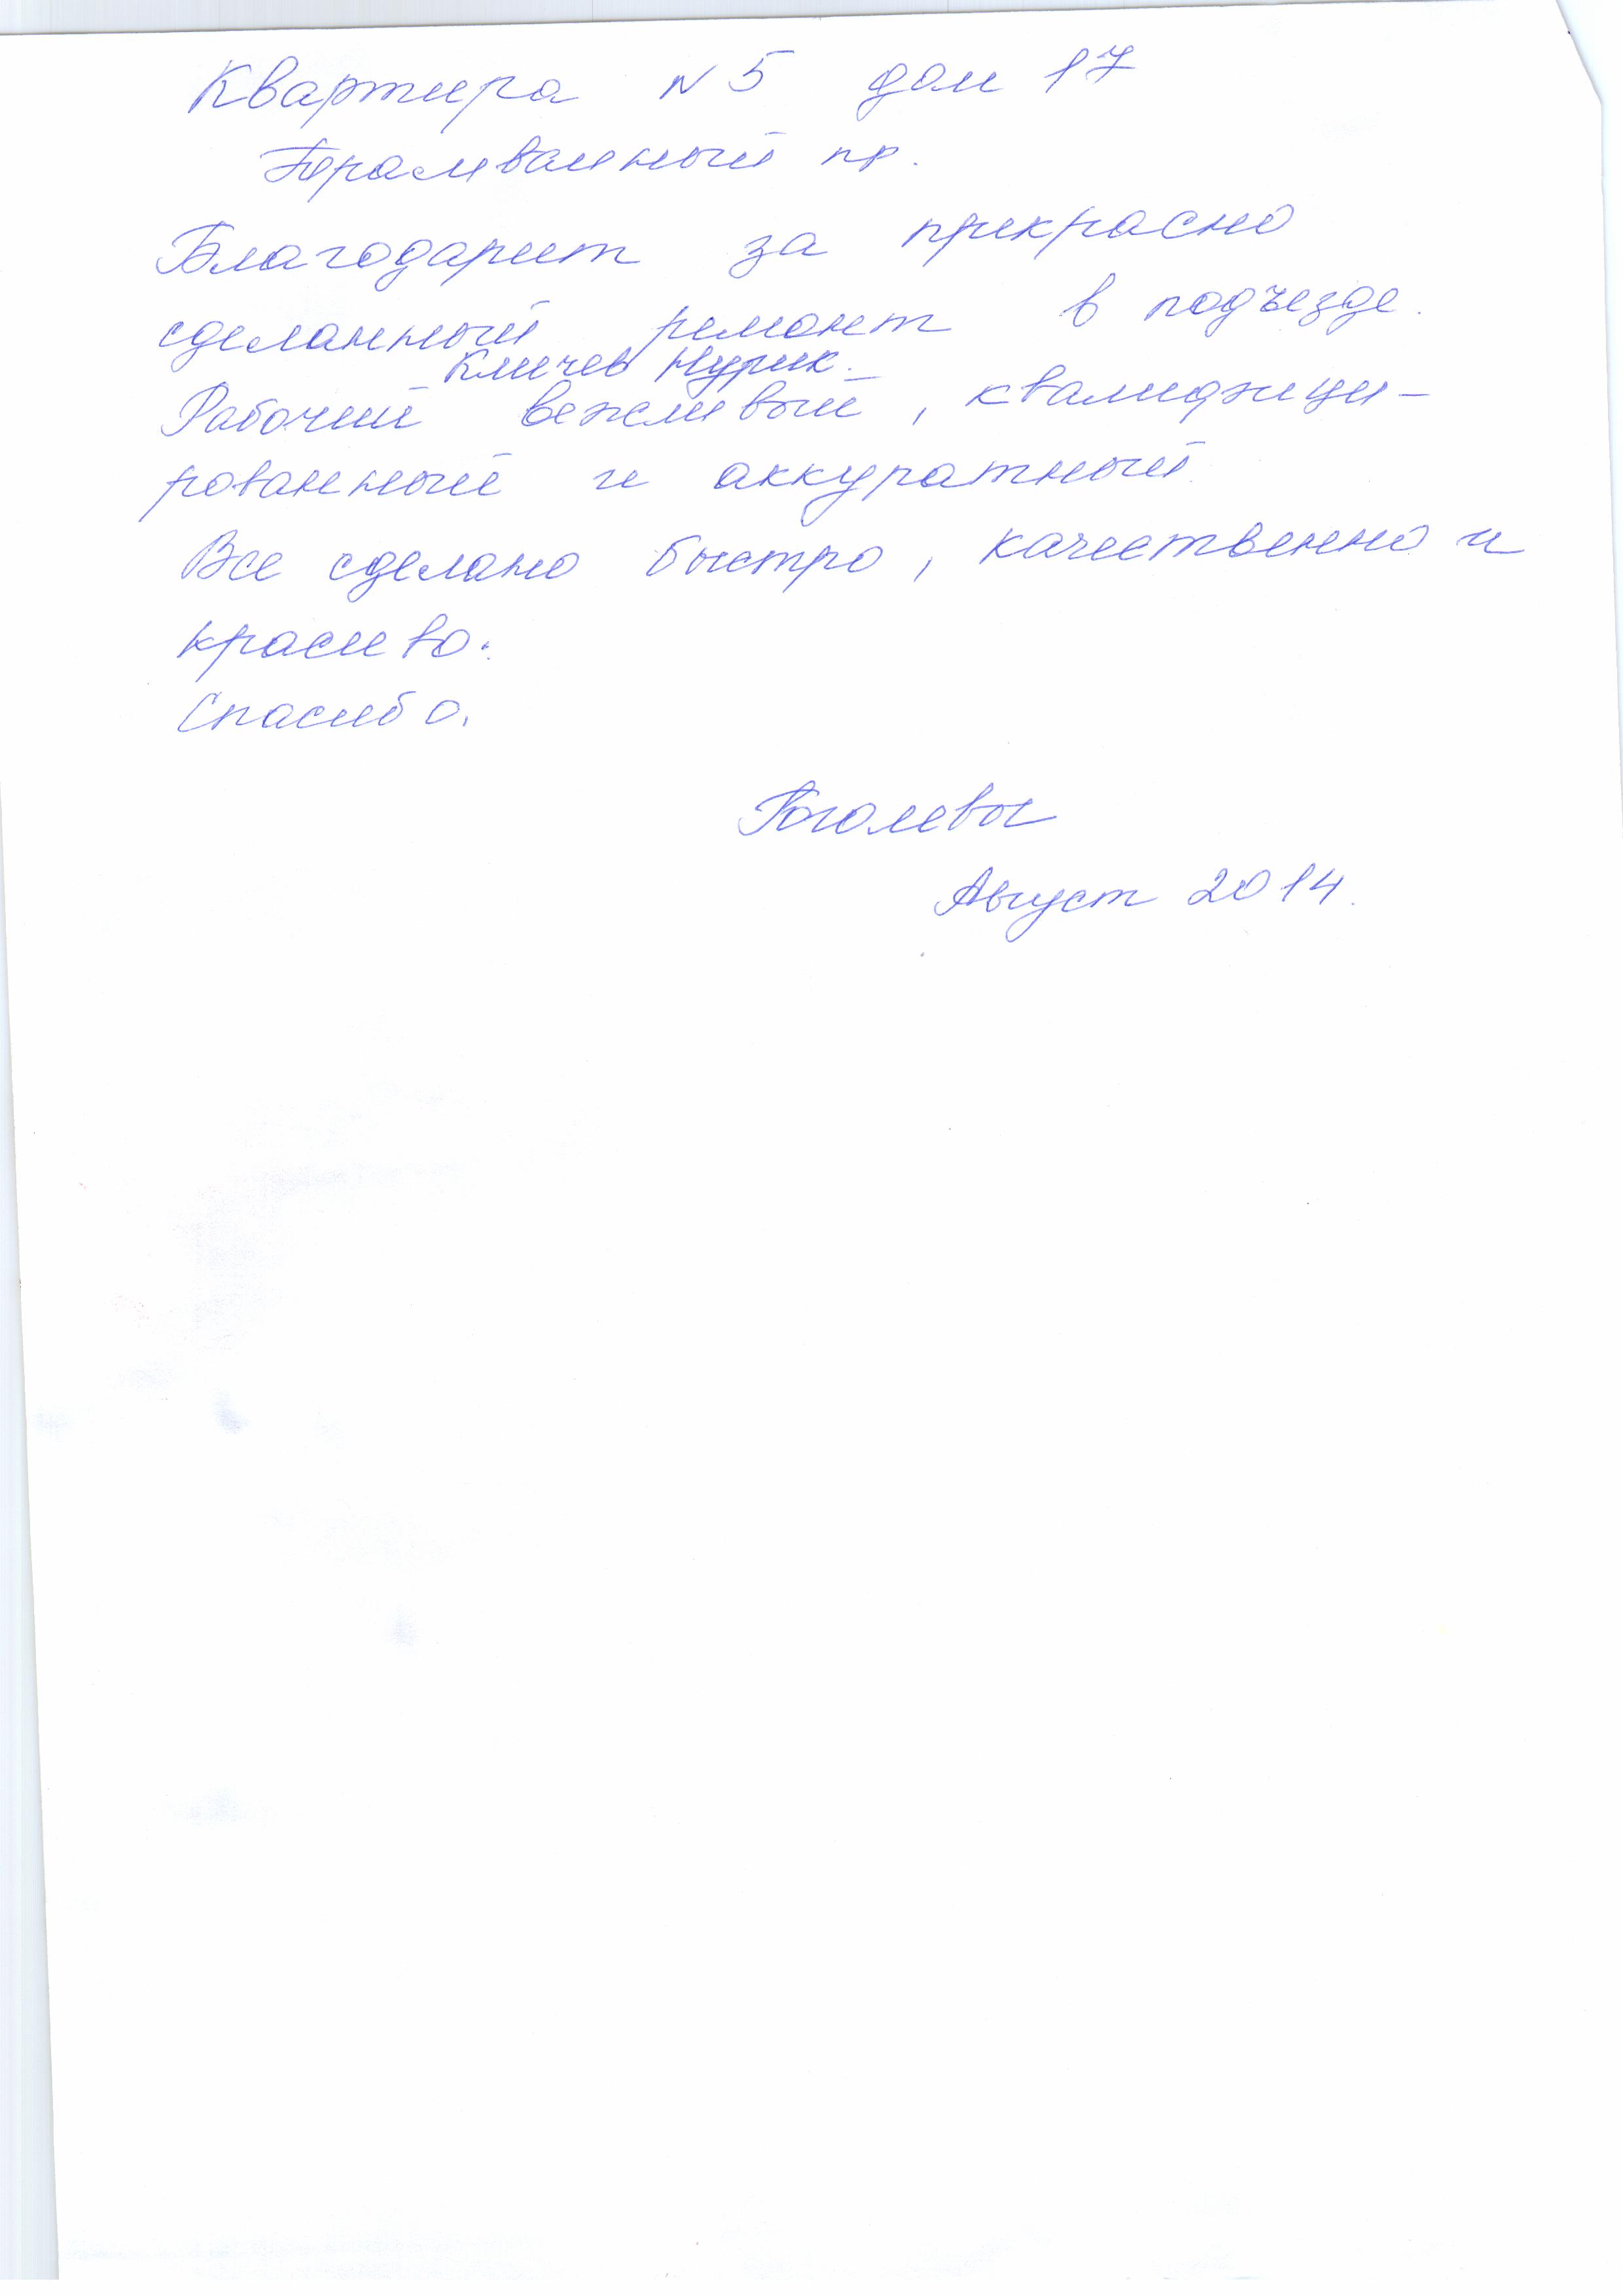 Квартира N 5 дом 17
Трамвайный пр.
Благодарит за прекрасно
сделанный ремонт в подъезде.
Кличев Нурик.
Рабочий вежливый, квалифици-
рованный и аккуратный.
Все сделано быстро, качественно и
красиво.
Спасибо.
Гоголевы
Август 2014.